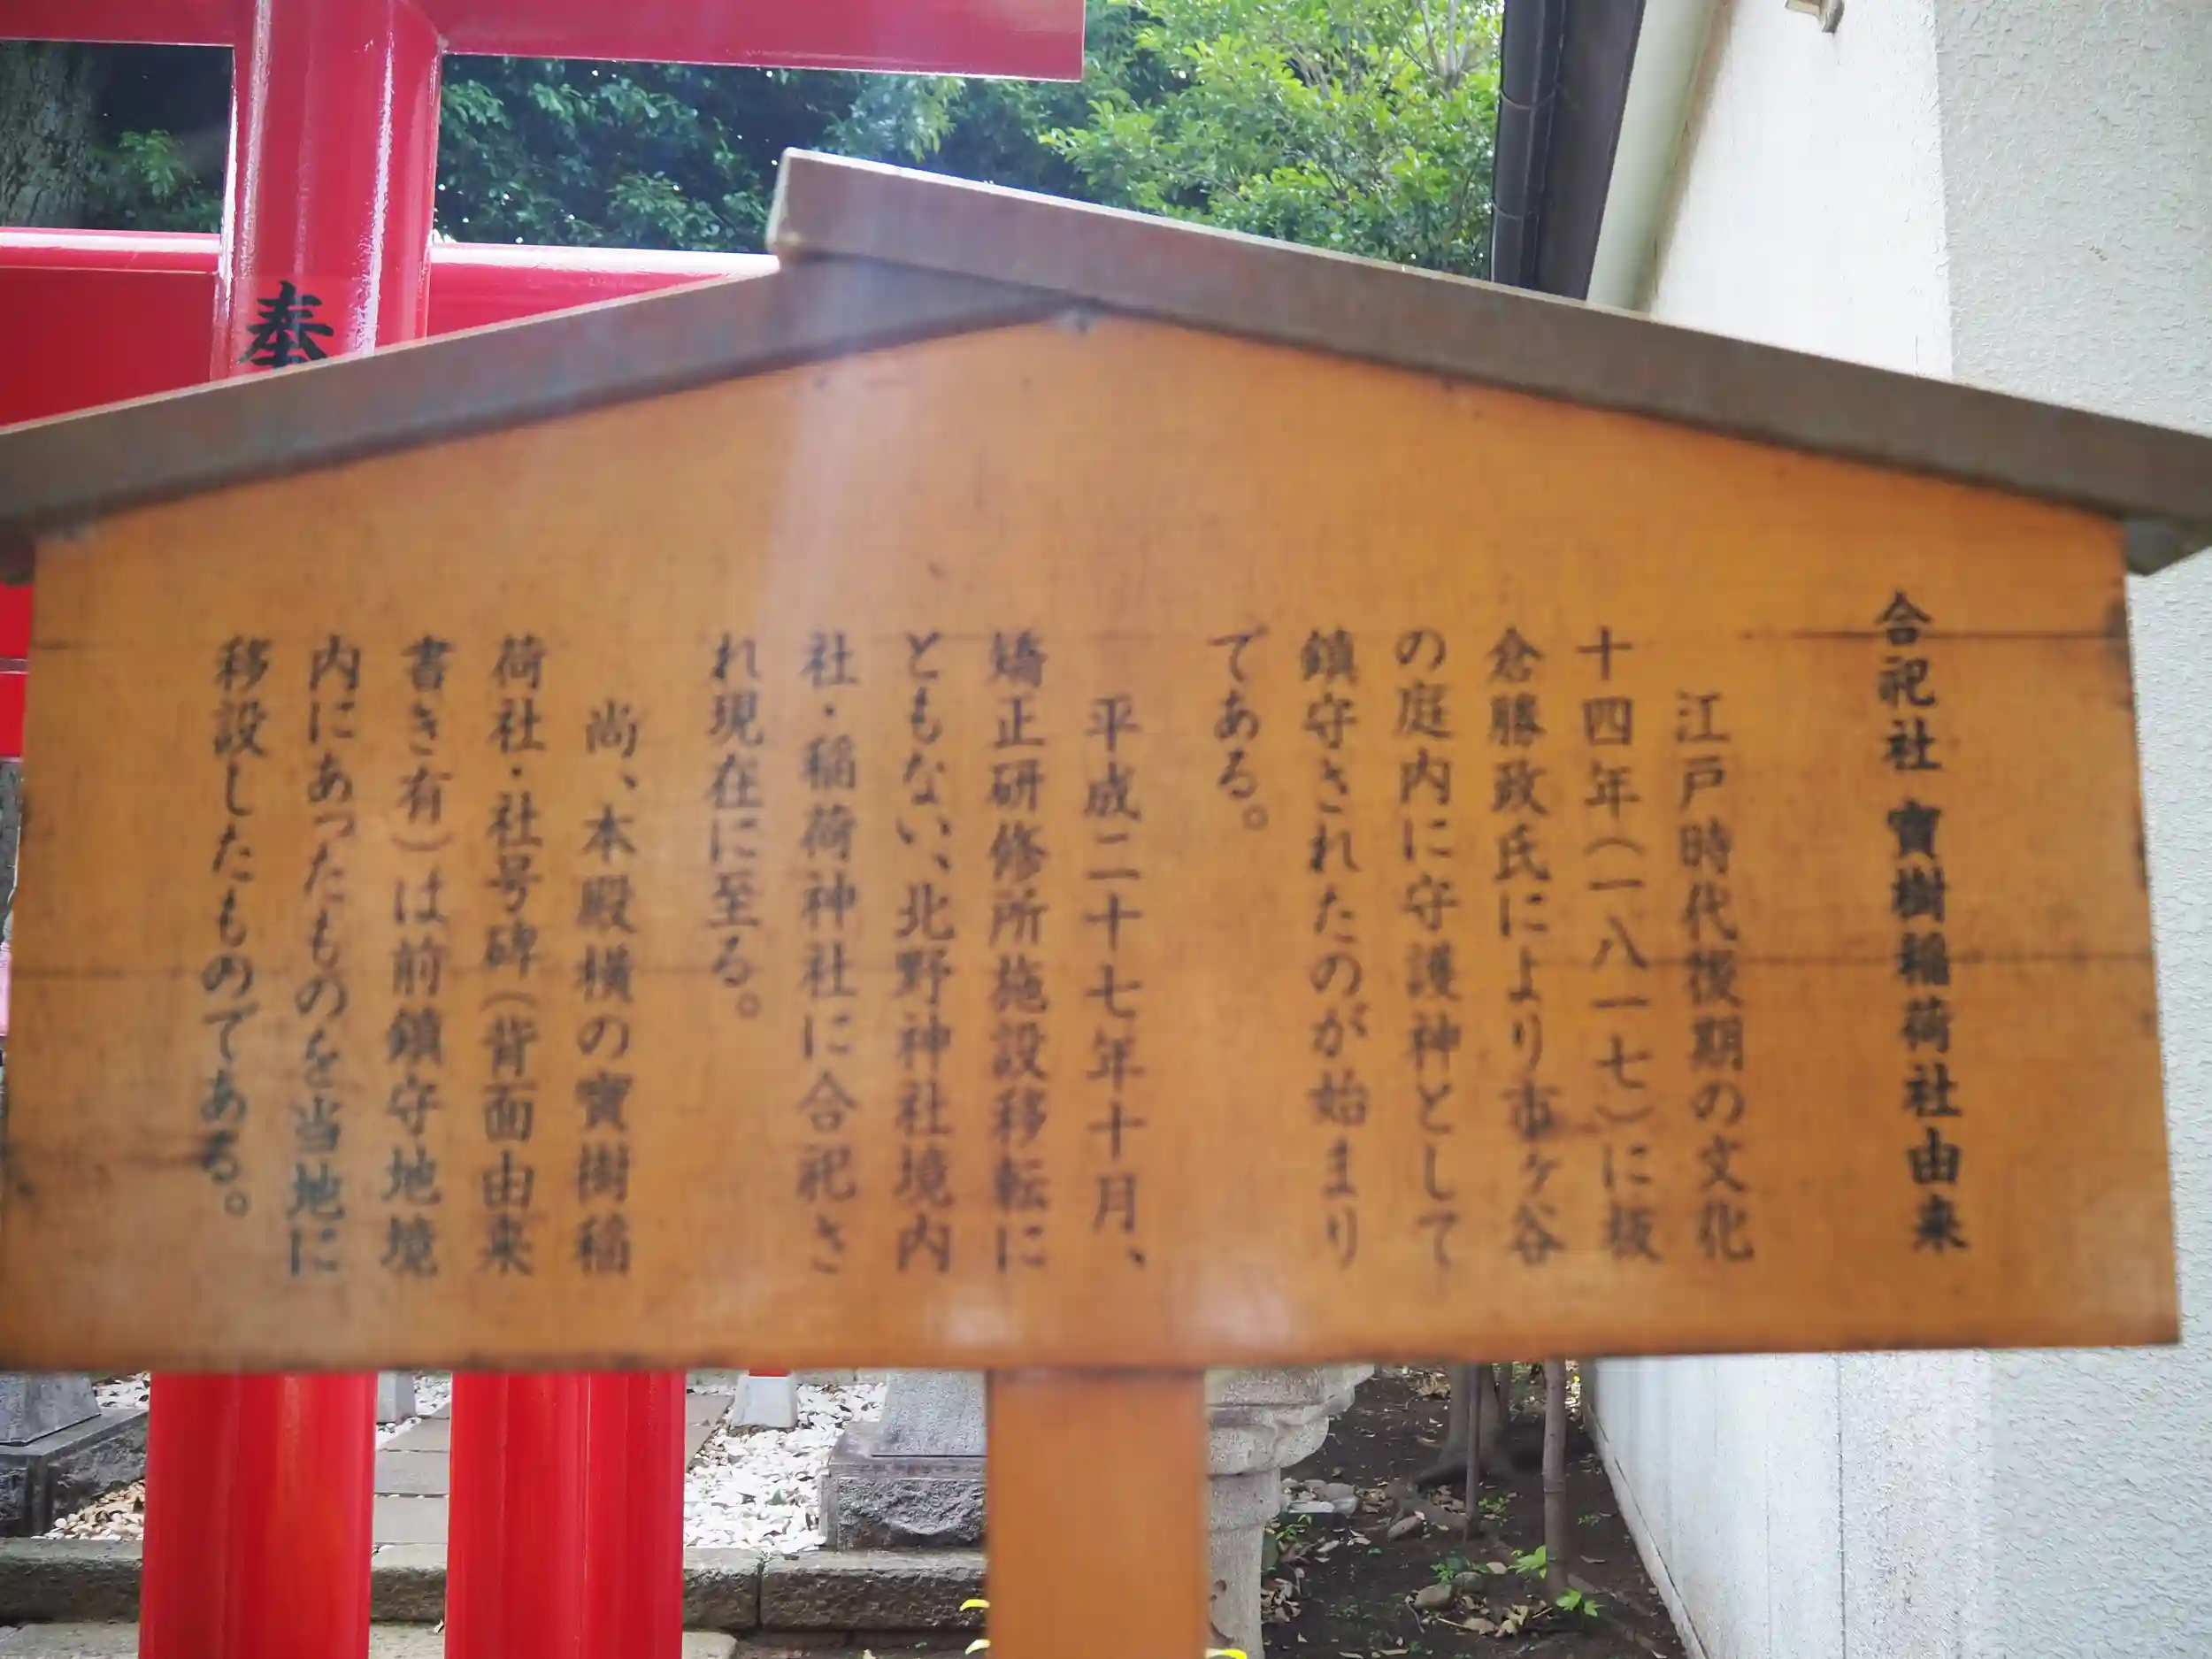 合祀社 寳樹稲荷社由来
江戸時代後期の文化
十四年(一八一七)に板
倉勝政氏により市ヶ谷
の庭内に守護神として
鎮守されたのが始まり
である。
平成二十七年十月、
矯正研修所施設移転に
ともない、北野神社境内
社・稲荷神社に合祀さ
れ現在に至る。
尚、本殿横の寳樹稲
荷社・社号碑(背面由来
書き有)は前鎮守地境
内にあったものを当地に
移設したものである。
奉